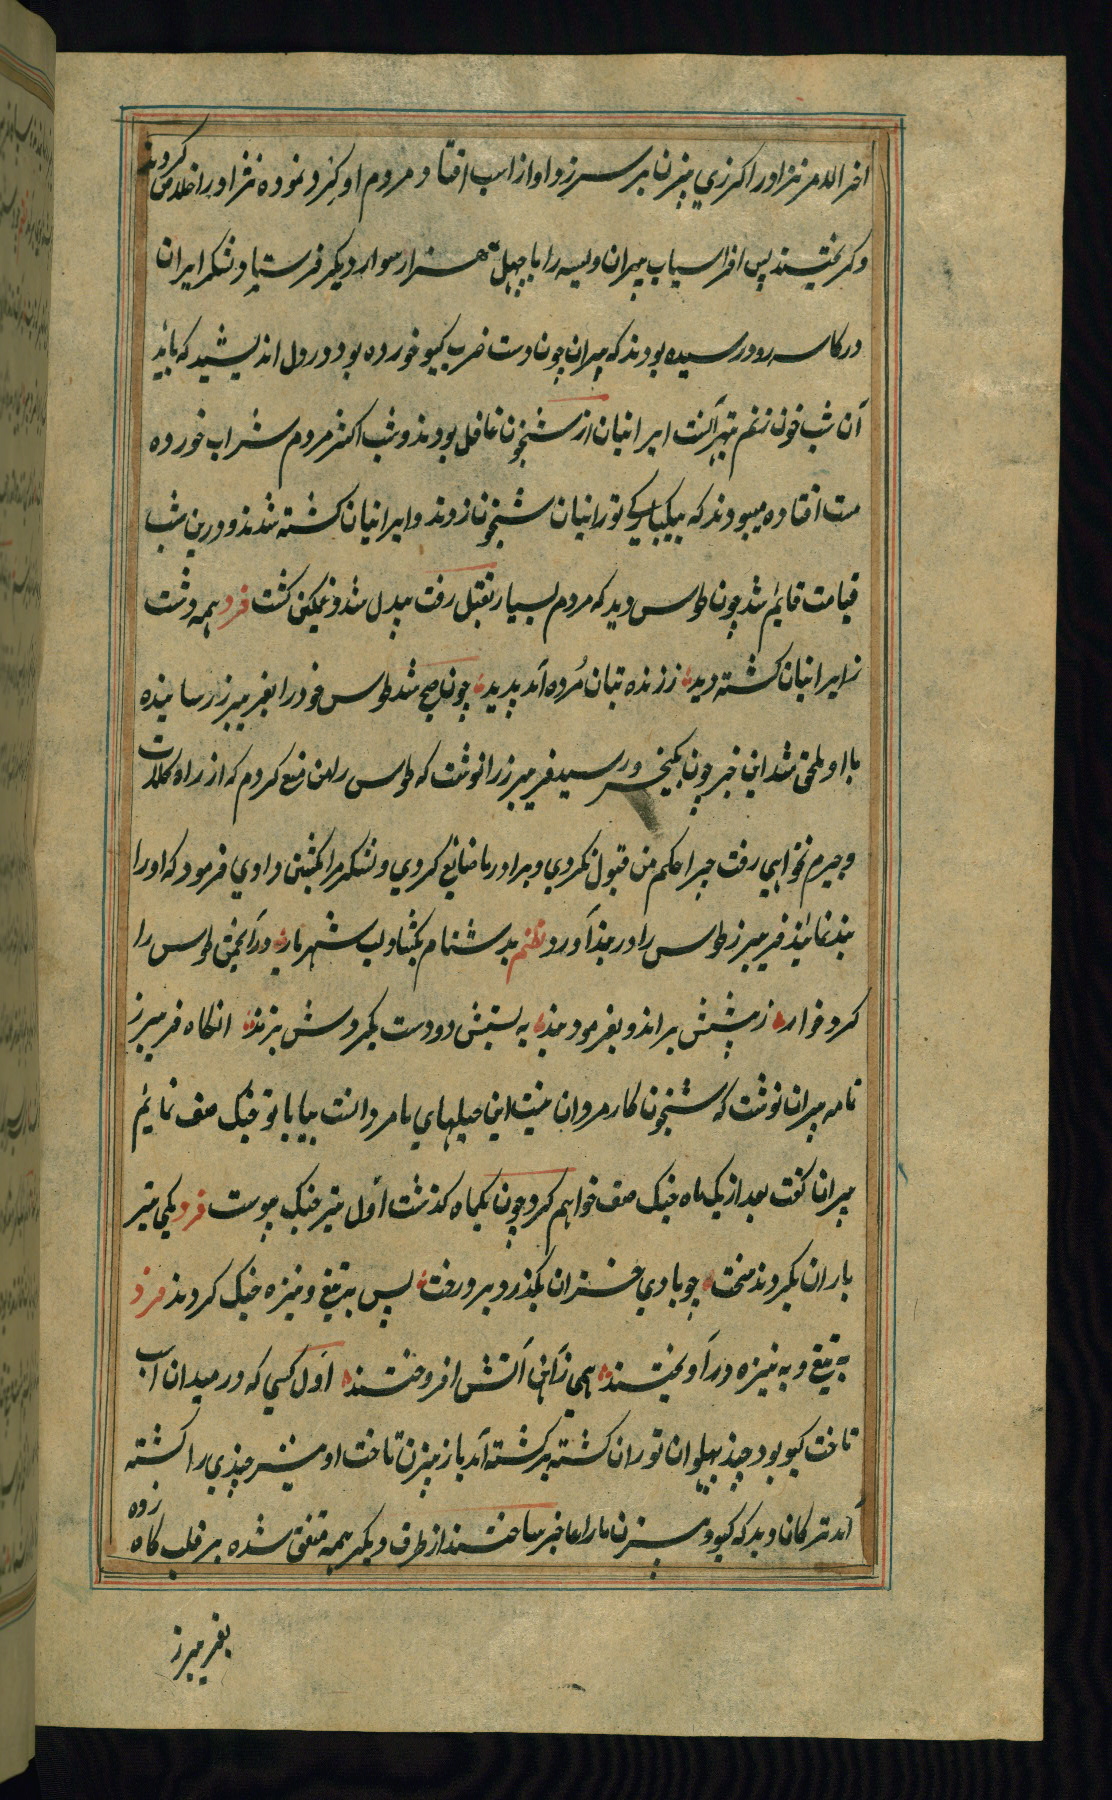 اخر الامر نژاد را گرزي بیژن بر سر زد او از اسپ افتاد مردم او گرد نموده نژاد را خلاص کردند
و گریختند پس افراسیاب پیران ویسه را با چهل هزار سوار دیگر فرستاد و لشکر ایران
در کاسه رود رسیده بودند که پیران چون دست ضرب گیو خورده بود در دل اندیشید که باید
آن شب خون زنم بهتر آنست ایرانیان از شبخون غافل بودند و شب اکثر مردم شراب خورده
مست افتاده میبودند که بیکبارگي تورانیان شبخون زدند و ایرانیان کشته شدند و درین شب
قیامت قایم شد چون طوس دید که مردم بسیار بقتل رفت بیدل شد و غمگین گشت فرد همه دشت
ز ایرانیان کشته دید ز زنده تنان مرده آمد پدید چون صبح شد طوس خود را بفریبرز رسانیده
با او ملحق شد این خبر چون بکیخسرو رسید فریبرز را نوشت که طوس را من منع کردم که از راه کلات
و جیرم نخواهي رفت چرا حکم من قبول نکردي و برادر ما ضایع کردي و لشکر مرا بکشتن دادي فرمود که او را
بند نمائید فریبرز طوس را در بند آورد نظم بدشنام بکشاد لب شهریار در آن انجمن طوس را
کرد خوار ز پیشش براند و بفرمود بند به بستش دو دست بگردنش بزند انگاه فریبرز
نامه پیران نوشت که شبخون کار مردان نیست این حیلهاي نامردانست بیا با تو جنگ صف نمائیم
پیران گفت بعد از یک ماه جنگ صف خواهم کرد چون یکماه گذشت اول بتیر جنگ پیوست فرد یکي تیر
باران بکردند سخت چو بادي خزان بگذرد بر درخت پس به تیغ و نیزه جنگ کردند فرد
به تیغ و به نیزه در آویختند همي ز آهن آتش افروختند اول کسي که در میدان اسپ
تاخت گیو بود چند پهلوان توران کشته برگشته آمد باز بیژن تاخت او نیز چندي را کشته
آمد ترکان دید که گیو و بیژن ما را عاجز ساختند از طرف دیگر همه متفق شده بر قلب گاه زده
بفریبرز